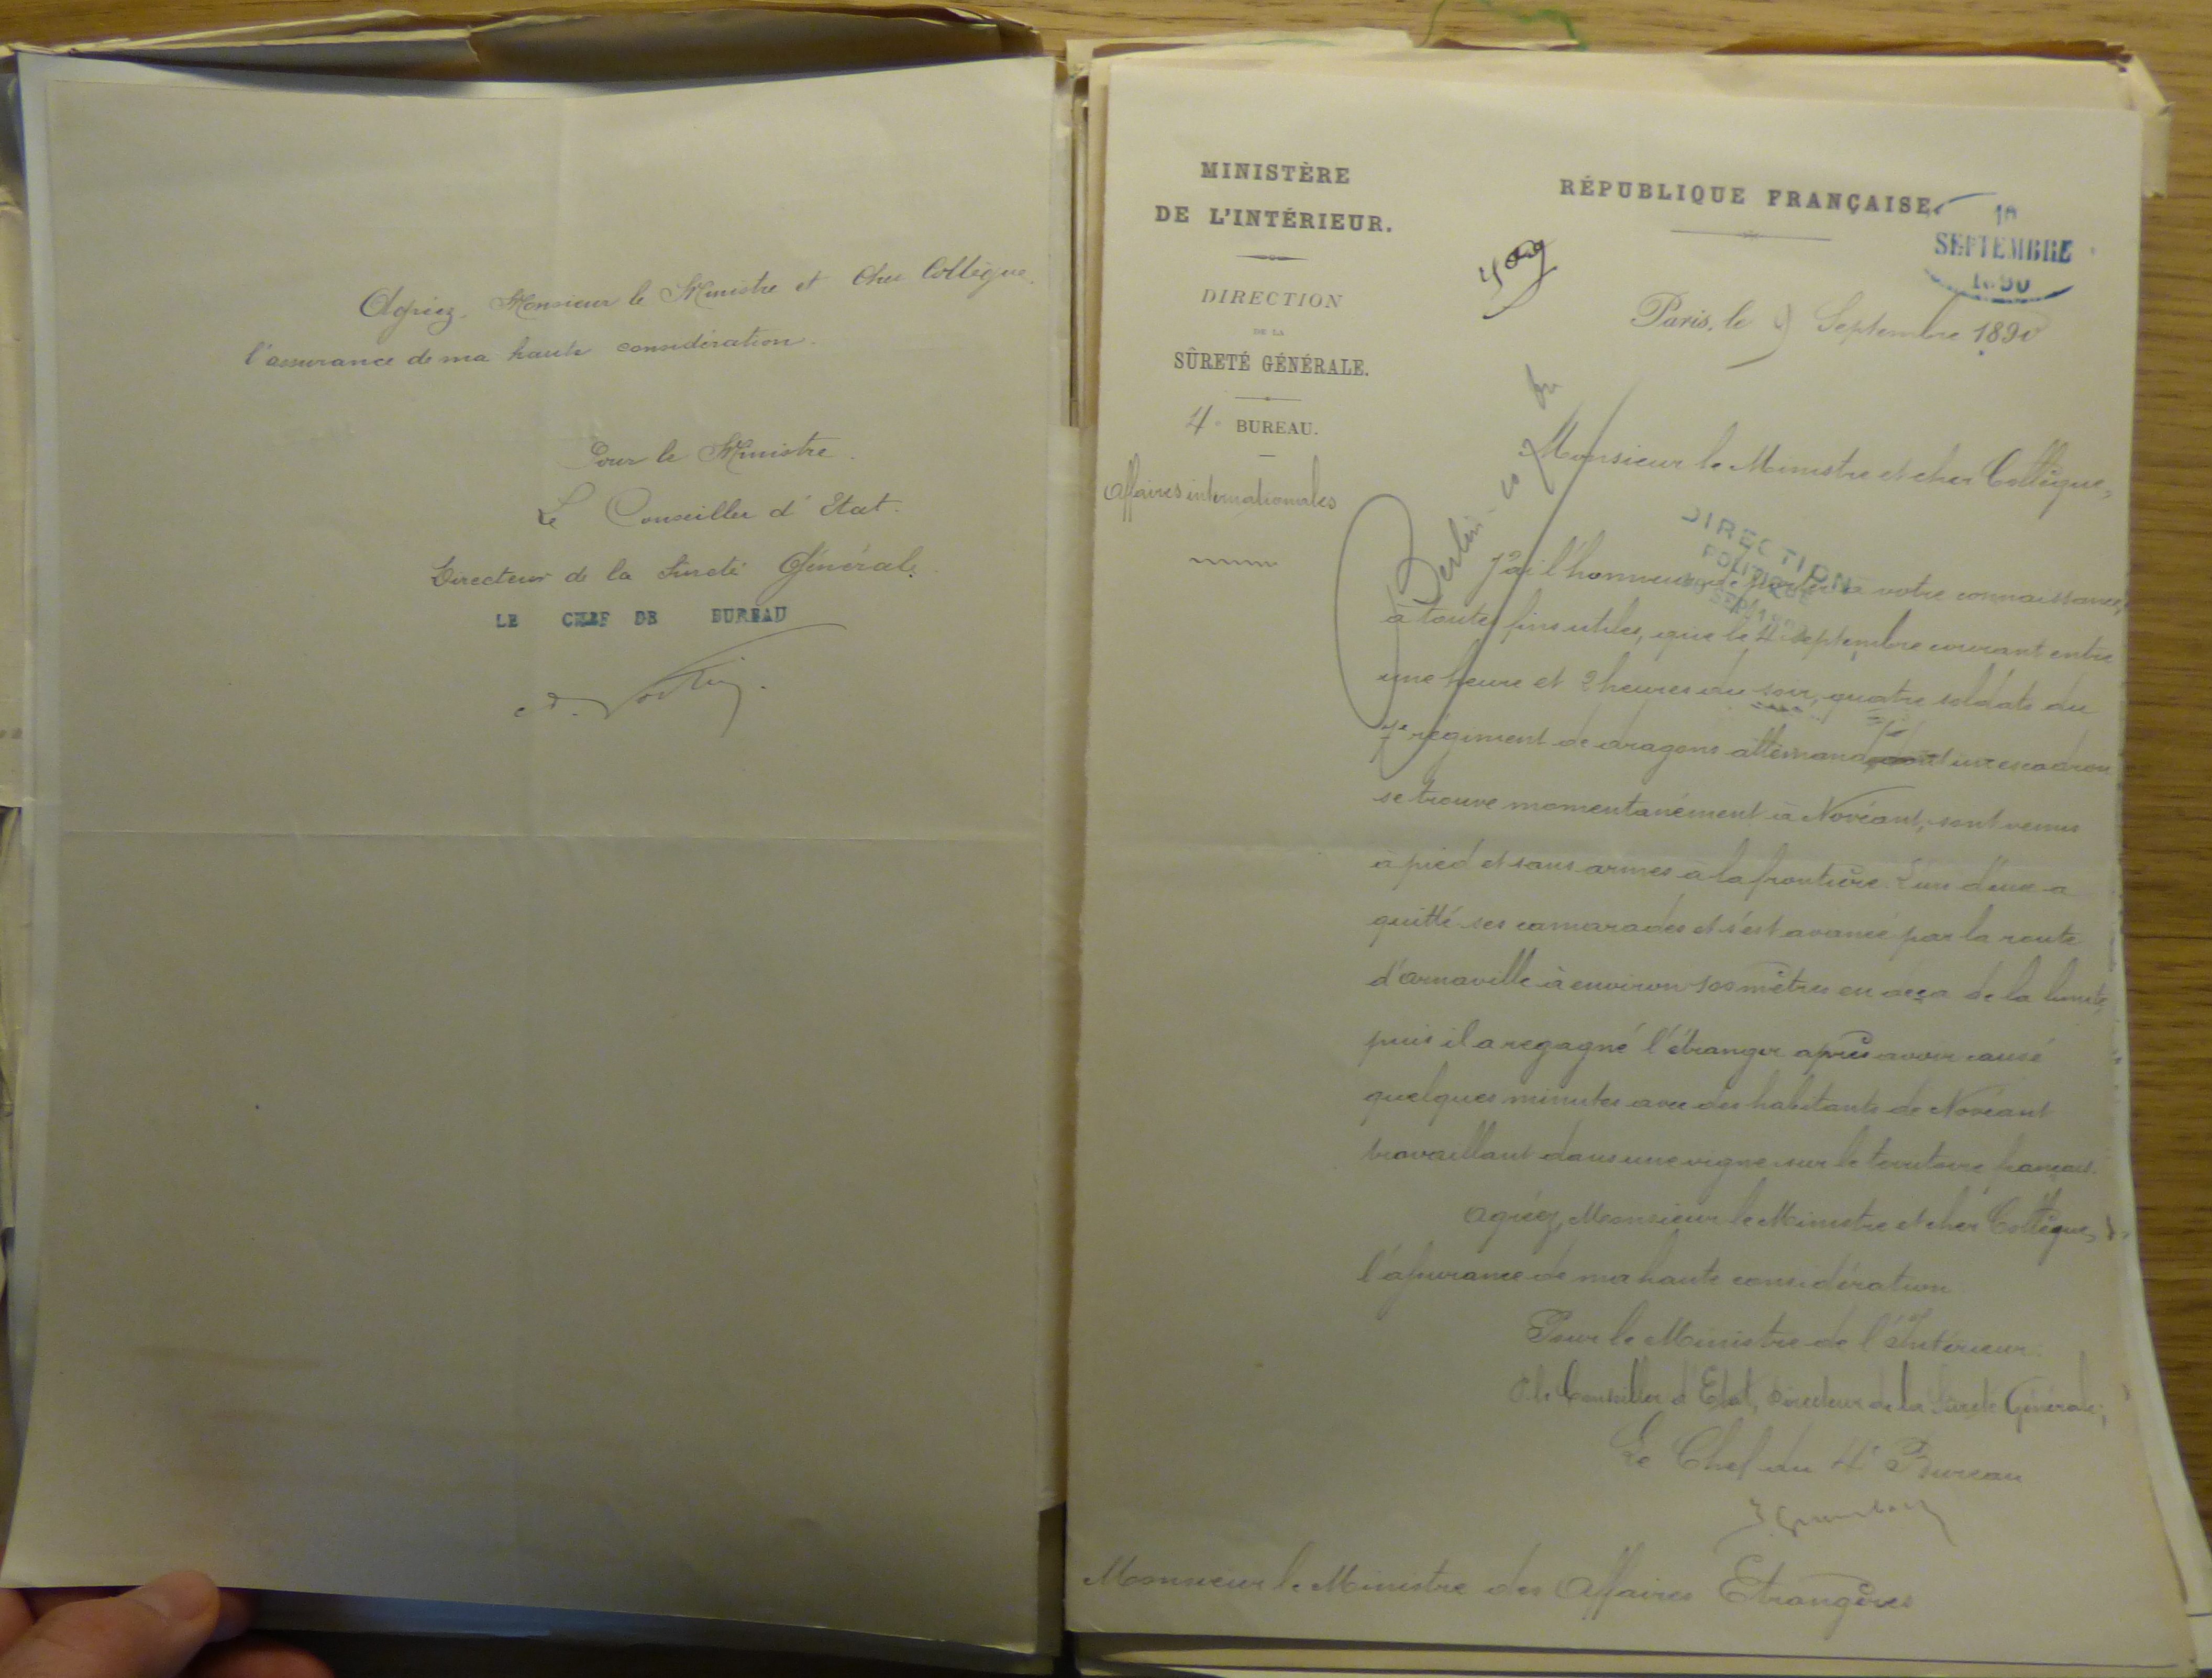 Agréez, Monsieur le Ministre et Cher Collègue,
l'assurance de ma haute considération.
Pour le Ministre.
Le Conseiller d'Etat.
Directeur de la Sureté Générale
LE CHEF DE BUREAU
MINISTÈRE
DE L'INTÉRIEUR.
DIRECTION
DE LA
SÛRETÉ GÉNÉRALE.
4e BUREAU.
Affaires internationales
RÉPUBLIQUE FRANÇAISE.
10
SEPTEMBRE
1890
Paris, le 9 Septembre 1890
Berlin
Monsieur le Ministre et cher Collègue,
DIRECTION
POLITIQUE
J'ai l'honneur de porter à votre connaissance,
à toutes fins utiles, que le 4 septembre courant entre
une heure et 2 heures du soir, quatre soldats du
7e régiment de dragons allemand dont un escadron
se trouve momentanément à Novéant, sont venus
à pied et sans armes à la frontière. L'un d'eux a
quitté ses camarades et s'est avancé par la route
d'Arnaville à environ 100 mètres en deça de la limite,
puis il a regagné l'étranger après avoir causé
quelques minutes avec des habitants de Novéant
travaillant dans une vigne sur le territoire français.
Agréez, Monsieur le Ministre et cher Collègue,
l'assurance de ma haute considération
Pour le Ministre de l'Intérieur:
P. le Conseiller d'Etat, Directeur de la Sureté Générale;
Le Chef du 4e Bureau
Monsieur le Ministre des Affaires Etrangères